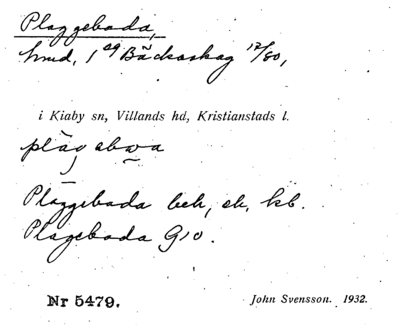 Plaggeboda,
hmd, 1 Bäckaskog 12/80,
i Kiaby sn, Villands hd, Kristianstads l.
Plaggeboda beh, ek, kb.
Plageboda G10.
Nr 5479.
John Svensson. 1932.